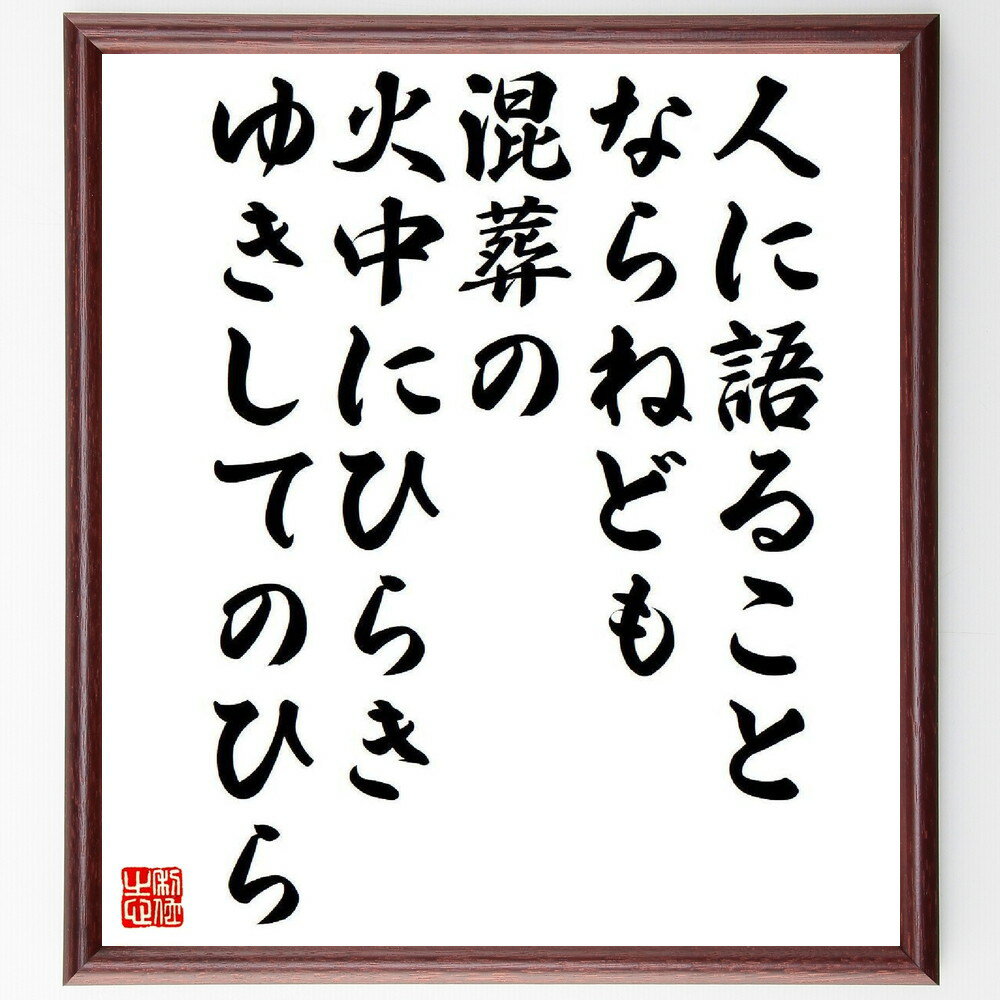 人に語ること
ならねども
混葬の
火中にひらき
ゆきしてのひら